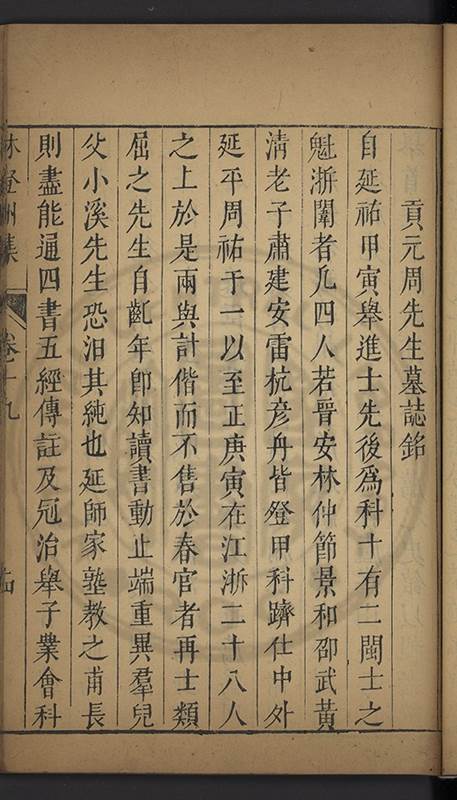 貢元周先生墓誌銘
自延祐甲寅舉進士先後爲科十有二閩士之
魁浙闈者凡四人若晉安林仲節景和邵武黃
清老子肅建安雷杭彥舟皆登甲科躋仕中外
延平周祐于一以至正庚寅在江浙二十八人
之上於是兩與計偕而不售於春官者再士類
屈之先生自齓年卽知讀書動止端重異羣兒
父小溪先生恐汨其純也延師家塾教之甫長
則盡能通四書五經傳註及冠治舉子業會科
林登州集
卷十九